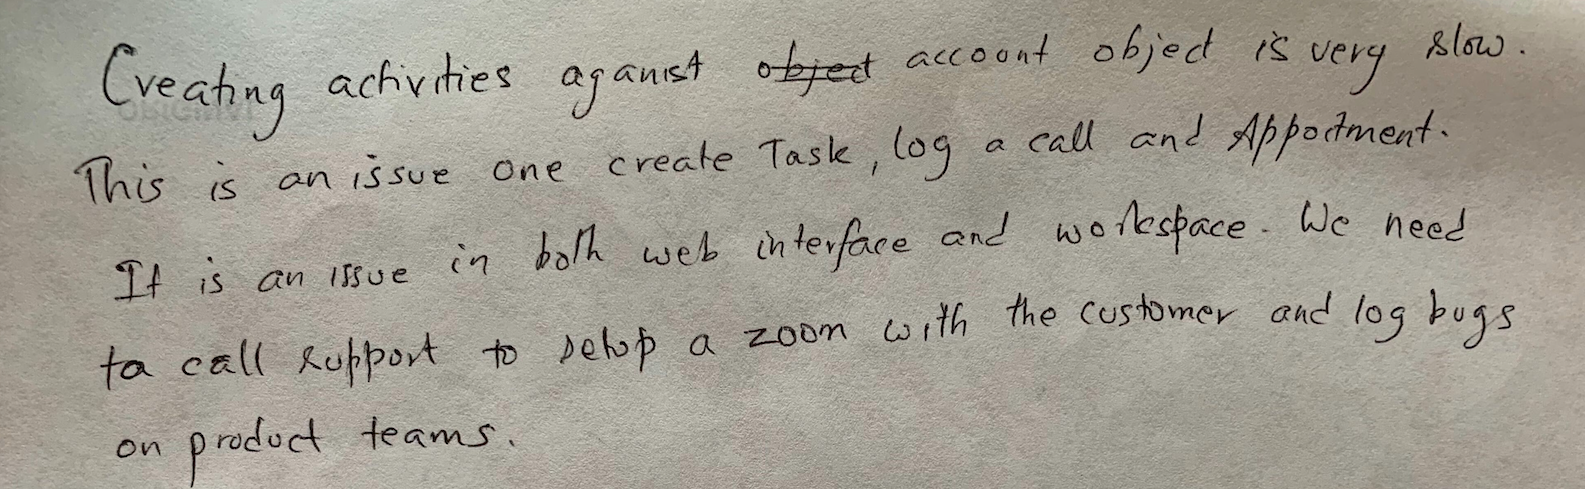 Creating activities aganist object account object is very slow.
This is an issue one create Task, log a call and Appoitment.
It is an issue in both web interface and workspace. We need
to call support to setup a zoom with the customer and log bugs
on product teams.